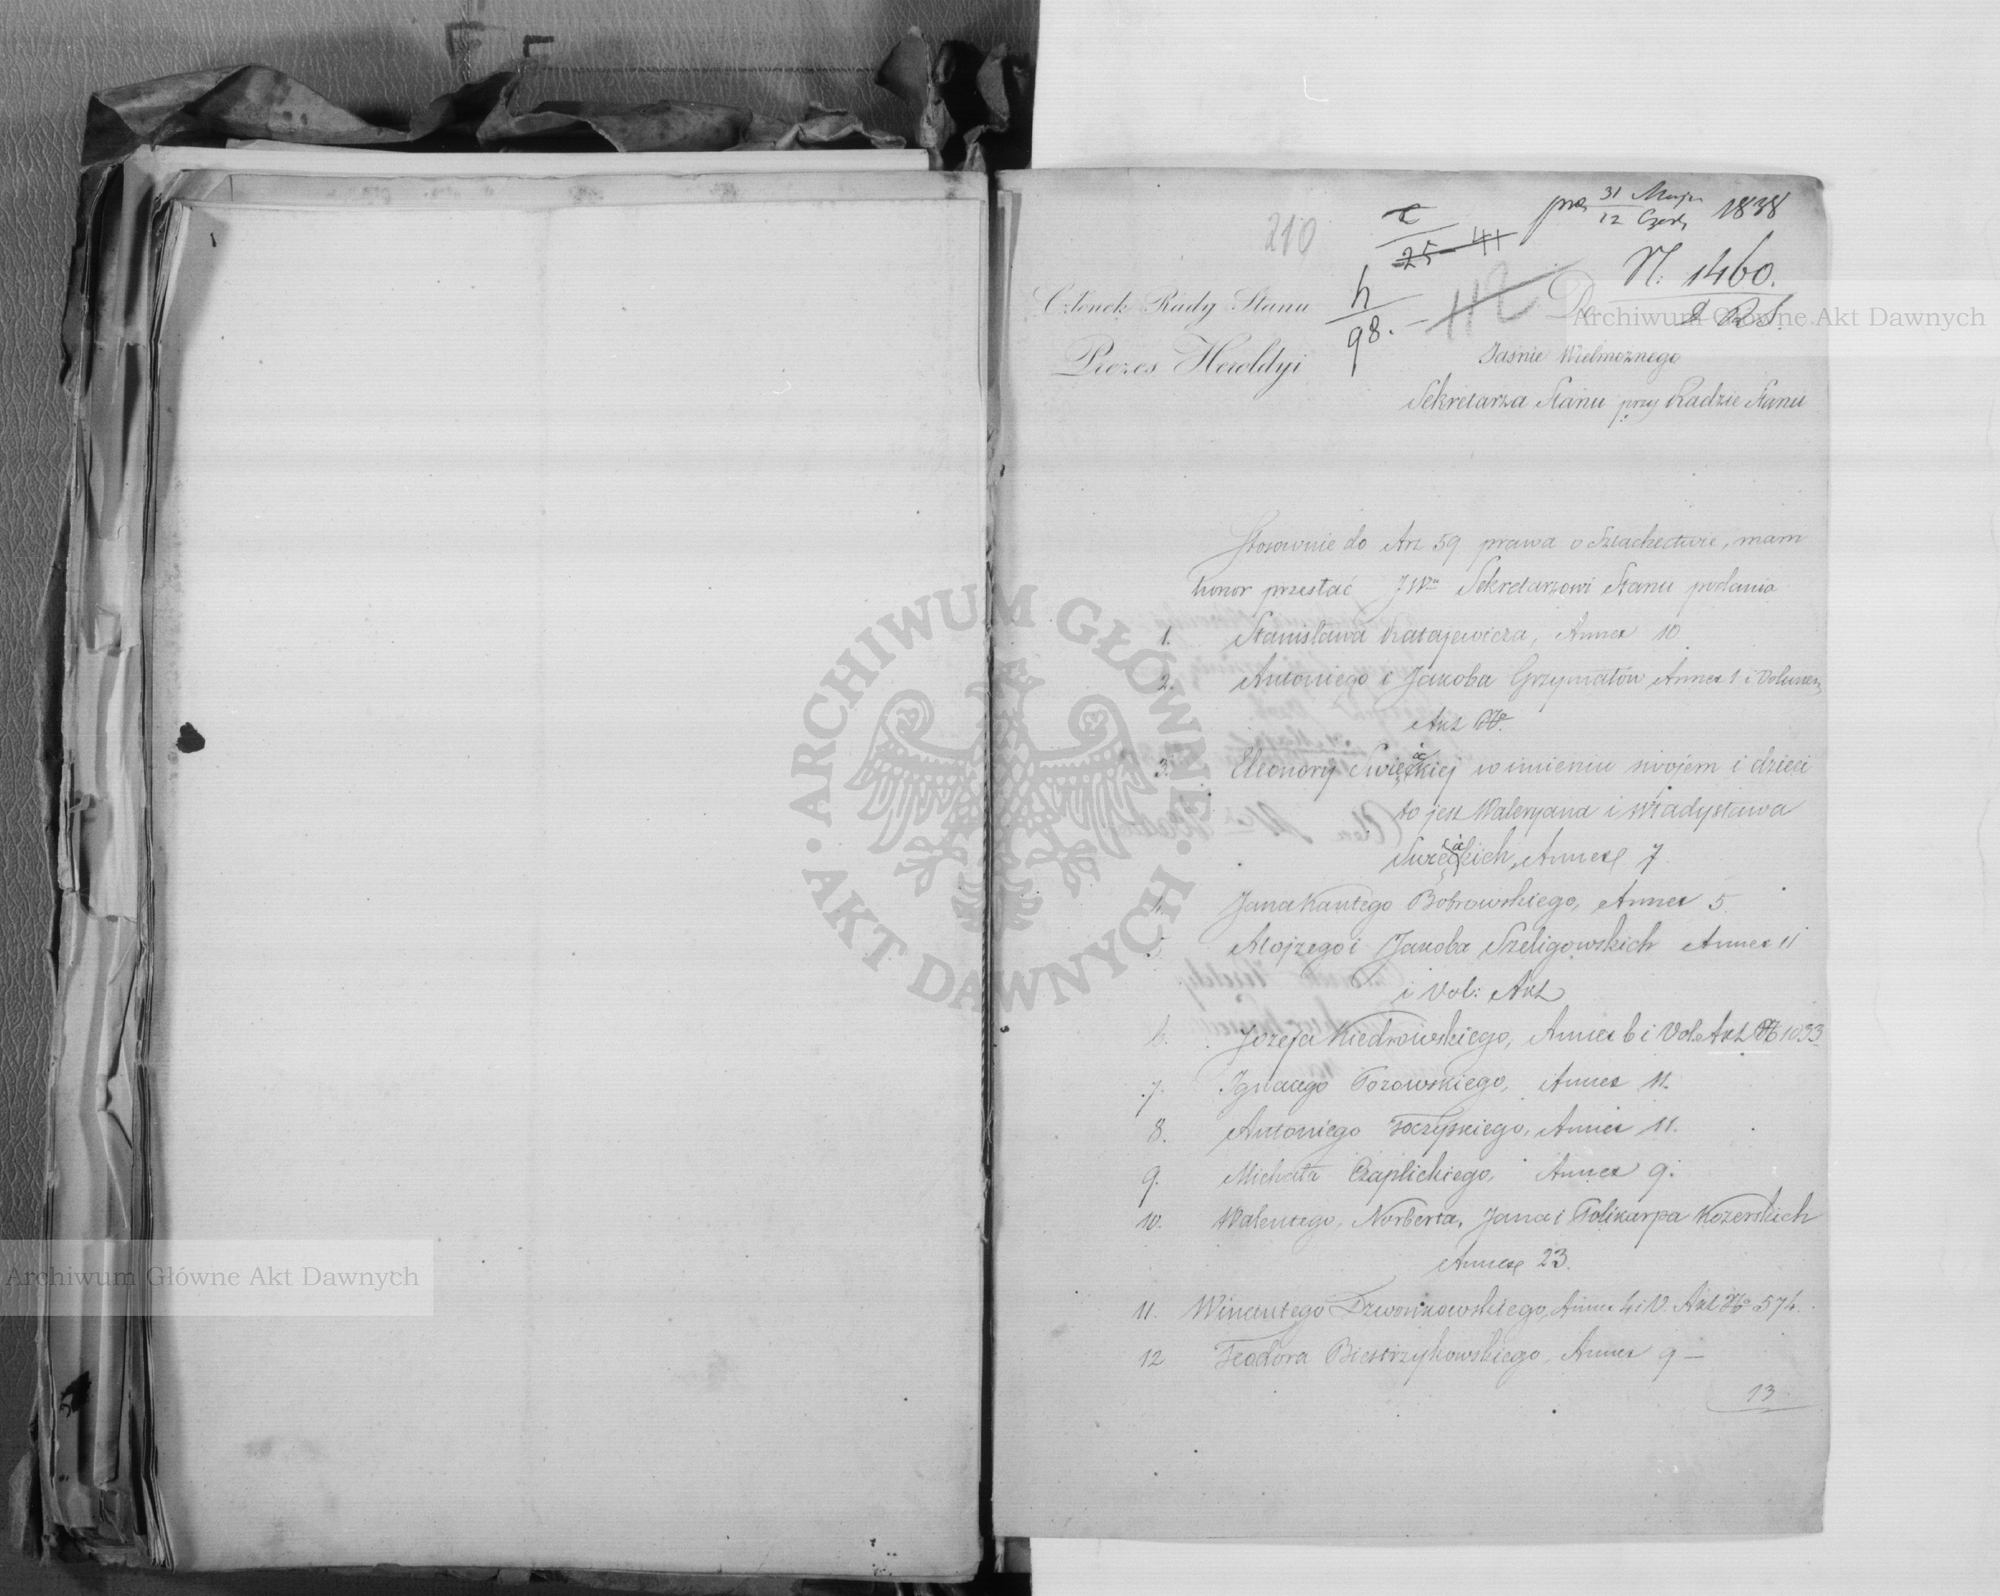 210
pre 31 Maja / 12 Czer 1838
25 - 41
h / 98. - 112
N: 1460.
D. R. S.
Członek Rady Stanu
Prezes Heroldyi
Do
Jaśnie Wielmożnego
Sekretarza Stanu przy Radzie Stanu
Stosownie do Art 59 prawa o Szlachectwie, mam
honor przesłać JWmu Sekretarzowi Stanu podania
1. Stanisława Ratajewicza, Annex 10
2. Antoniego i Jakoba Grzymałów Annex 1 i Volumen
Akt No.
3. Eleonory w imieniu swojem i dzieci
to jest Waleryana i Władysława
Annex 7.
4. Jana Kantego Bobrowskiego, Annex 5.
5. Alojzego i Jakoba Szeligowskich Annex 11
i Vol: Akt
6. Jozefa Kiedrowskiego, Annex 6 i Vol. Akt No 1033
7. Ignacego Torowskiego, Annex 11.
8. Antoniego Toczyskiego, Annex 11.
9. Michała Czaplickiego, Annex 9.
10. Walentego, Norberta, Jana i Polikarpa Kozerskich
Annex 23.
11. Wincentego Dzwonkowskiego, Annex 4 i V. Akt No 574.
12 Teodora Biestrzykowskiego, Annex 9 —
13
Archiwum Główne Akt Dawnych
ARCHIWUM GŁÓWNE
· AKT DAWNYCH ·
Archiwum Główne Akt Dawnych